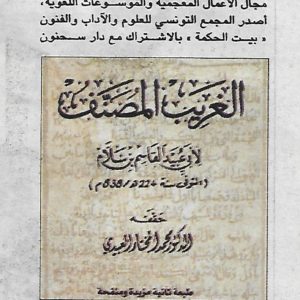 مجال الأعمال المعجمية والموسوعات اللغوية،
أصدر المجمع التونسي للعلوم والآداب والفنون
« بيت الحكمة » بالاشتراك مع دار سحنون
الغريب المصنف
لأبي عبيد القاسم بن سلام
(المتوفى سنة 224هـ/838م)
حققه
الدكتور محمد المختار العبيدي
طبعة ثانية مزيدة ومنقحة